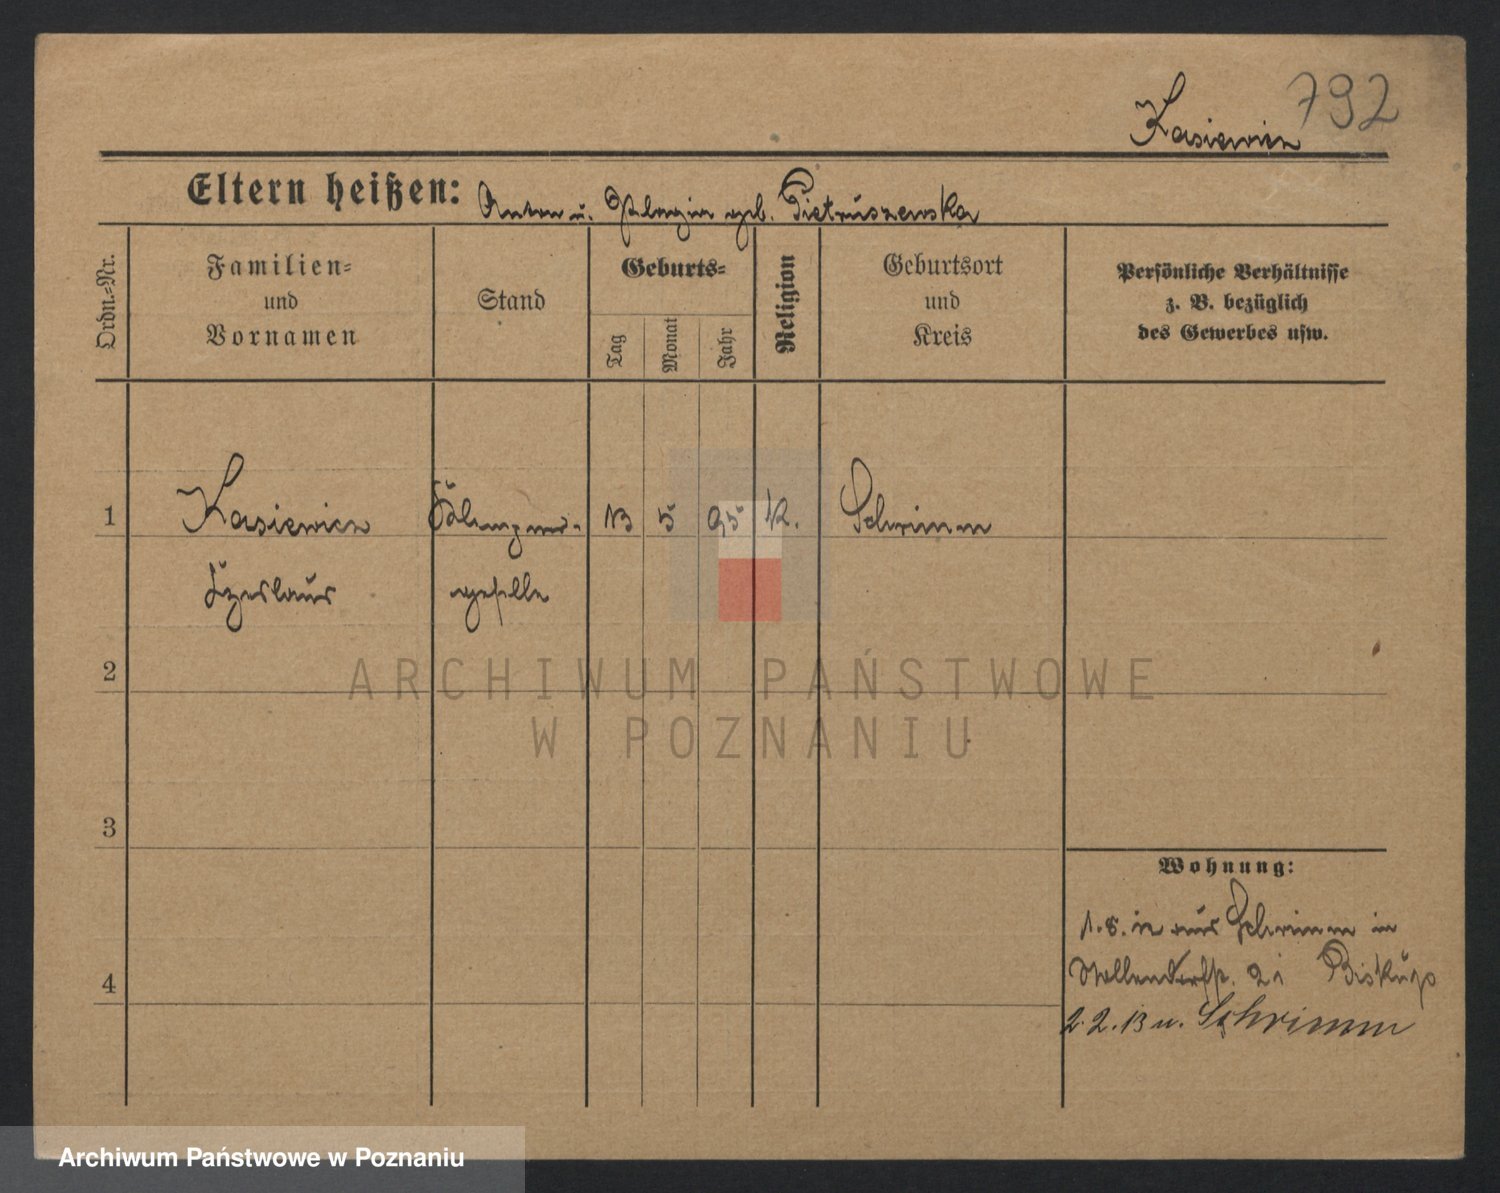 792
Kasiewicz
Eltern heißen: Anton u. Pelagia geb. Pietruszewska
Ordn.-Nr.
Familien-
und
Vornamen
Stand
Geburts-
Tag
Monat
Jahr
Religion
Geburtsort
und
Kreis
Persönliche Verhältnisse
z. B. bezüglich
des Gewerbes usw.
1
Kasiewicz
Klempner-
13
5
95
K.
Schrimm
Czeslaus
geselle
2
3
4
Wohnung:
1.8.12 aus Schrimm in
21 Biskup
2.2.13 n. Schrimm
ARCHIWUM PAŃSTWOWE
W POZNANIU
Archiwum Państwowe w Poznaniu